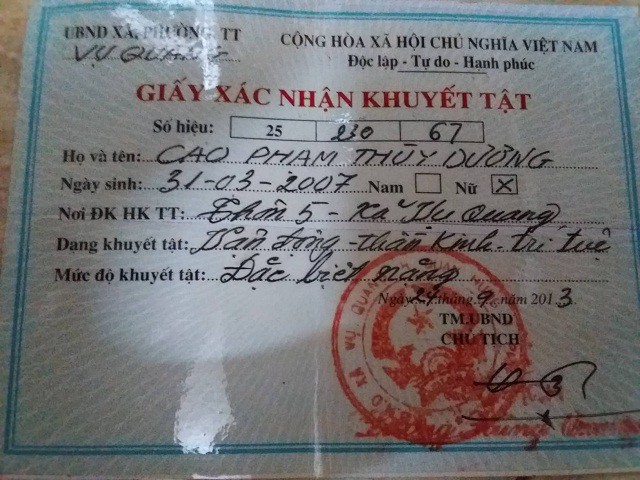 UBND XÃ, PHƯỜNG, TT CỘNG HÒA XÃ HỘI CHỦ NGHĨA VIỆT NAM
VỤ QUANG Độc lập - Tự do - Hạnh phúc
GIẤY XÁC NHẬN KHUYẾT TẬT
Số hiệu: 25 230 67
Họ và tên: CAO PHẠM THÙY DƯƠNG
Ngày sinh: 31-03-2007 Nam Nữ X
Nơi ĐK HK TT: Thôn 5 - Xã Vụ Quang
Dạng khuyết tật: Vận động - Thần Kinh - Trí tuệ
Mức độ khuyết tật: Đặc biệt nặng
Ngày 24 tháng 9 năm 2013
TM.UBND
CHỦ TỊCH